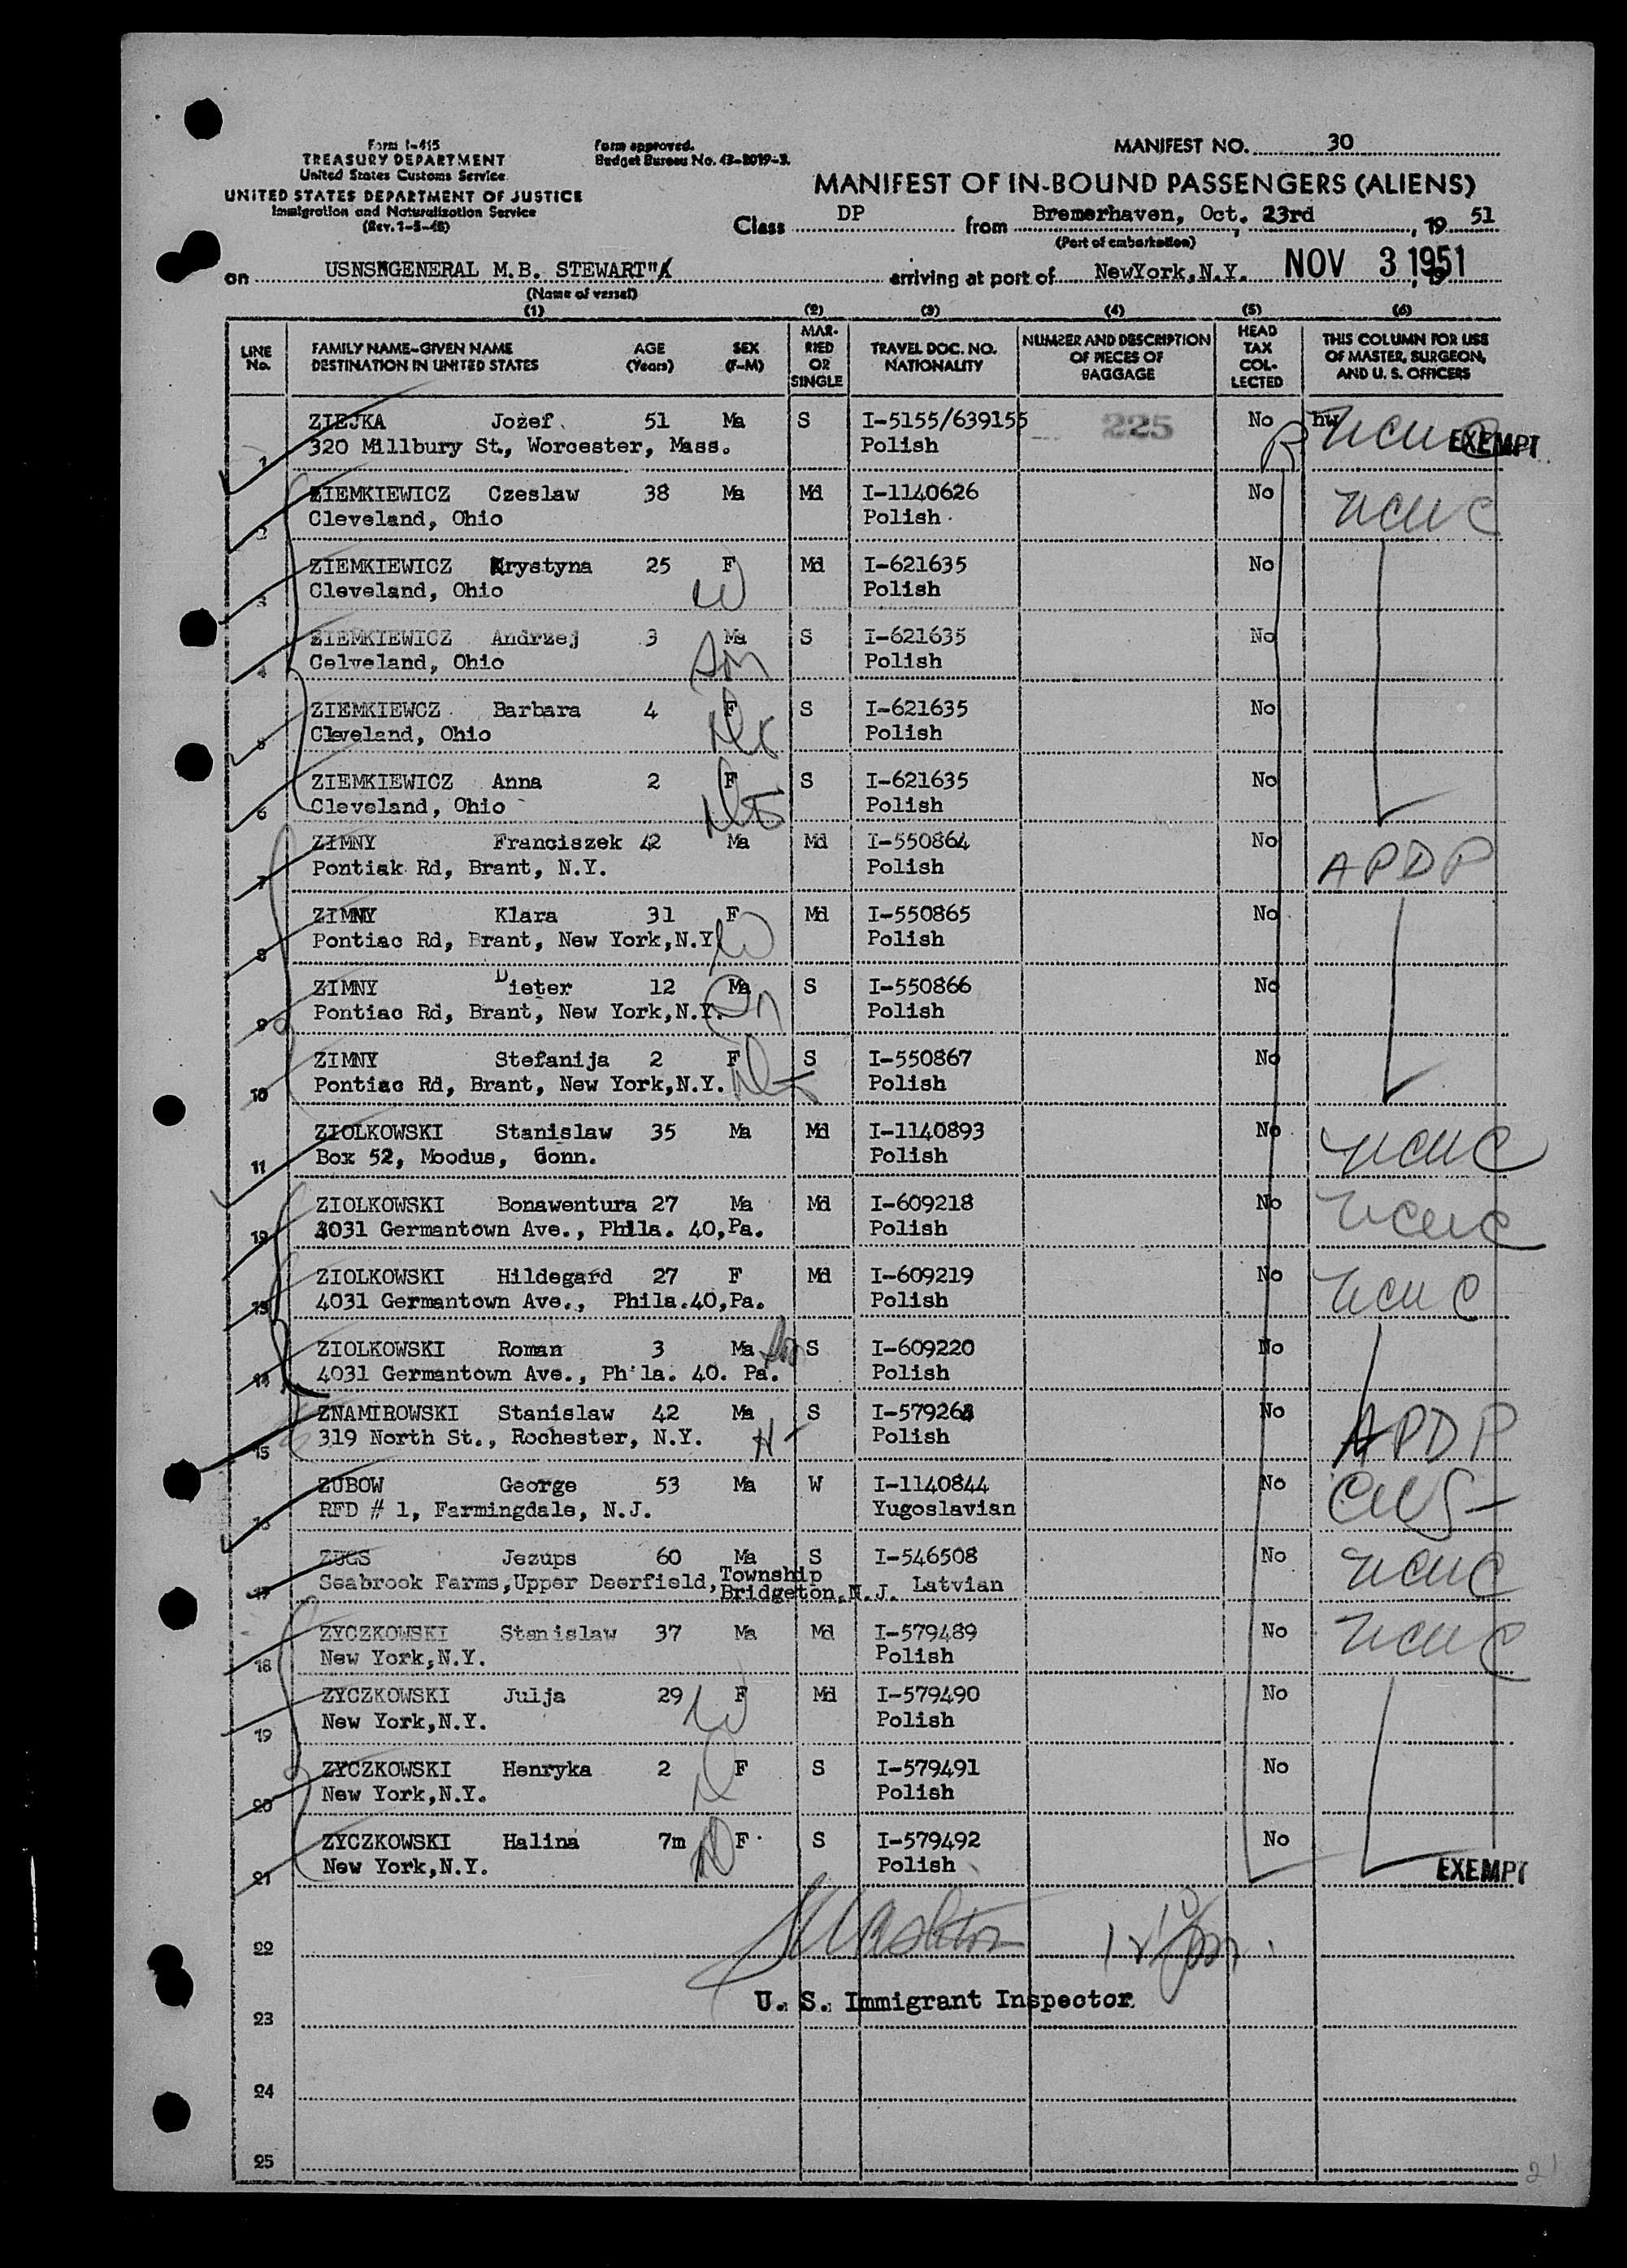 Form I-415
TREASURY DEPARTMENT
United States Customs Service
UNITED STATES DEPARTMENT OF JUSTICE
Immigration and Naturalization Service
(Rev. 1-5-48)
Form approved.
Budget Bureau No. 43-R019-3.
MANIFEST NO. 30
MANIFEST OF IN-BOUND PASSENGERS (ALIENS)
Class DP from Bremerhaven, Oct. 23rd, 19 51
(Port of embarkation)
on USNS"GENERAL M.B. STEWART" arriving at port of NewYork,N.Y. NOV 3 1951
(Name of vessel)
(1) (2) (3) (4) (5) (6)
LINE No. FAMILY NAME-GIVEN NAME DESTINATION IN UNITED STATES AGE (Years) SEX (F-M) MAR-RIED OR SINGLE TRAVEL DOC. NO. NATIONALITY NUMBER AND DESCRIPTION OF PIECES OF BAGGAGE HEAD TAX COL-LECTED THIS COLUMN FOR USE OF MASTER, SURGEON, AND U. S. OFFICERS
1 ZIEJKA Jozef 51 Ma S I-5155/639155 225 No hw NCWC EXEMPT
320 Millbury St., Worcester, Mass. Polish
2 ZIEMKIEWICZ Czeslaw 38 Ma Md I-1140626 No NCWC
Cleveland, Ohio Polish
3 ZIEMKIEWICZ Krystyna 25 F Md I-621635 No
Cleveland, Ohio W Polish
4 ZIEMKIEWICZ Andrzej 3 Ma S I-621635 No
Celveland, Ohio son Polish
5 ZIEMKIEWCZ Barbara 4 F S I-621635 No
Cleveland, Ohio Polish
6 ZIEMKIEWICZ Anna 2 F S I-621635 No
Cleveland, Ohio Polish
7 ZIMNY Franciszek 42 Ma Md I-550864 No APDP
Pontiak Rd, Brant, N.Y. Polish
8 ZIMNY Klara 31 F Md I-550865 No
Pontiac Rd, Brant, New York,N.Y. W Polish
9 ZIMNY Dieter 12 Ma S I-550866 No
Pontiac Rd, Brant, New York,N.Y. Polish
10 ZIMNY Stefanija 2 F S I-550867 No
Pontiac Rd, Brant, New York,N.Y. Polish
11 ZIOLKOWSKI Stanislaw 35 Ma Md I-1140893 No NCWC
Box 52, Moodus, Conn. Polish
12 ZIOLKOWSKI Bonawentura 27 Ma Md I-609218 No NCWC
4031 Germantown Ave., Phila. 40,Pa. Polish
13 ZIOLKOWSKI Hildegard 27 F Md I-609219 No NCWC
4031 Germantown Ave., Phila.40,Pa. Polish
14 ZIOLKOWSKI Roman 3 Ma S I-609220 No
4031 Germantown Ave., Ph'la. 40. Pa. Polish
15 ZNAMIROWSKI Stanislaw 42 Ma S I-579268 No APDP
319 North St., Rochester, N.Y. H Polish
16 ZUBOW George 53 Ma W I-1140844 No CWS
RFD # 1, Farmingdale, N.J. Yugoslavian
17 ZUGS Jezups 60 Ma S I-546508 No NCWC
Seabrook Farms,Upper Deerfield, Township Bridgeton,N.J. Latvian
18 ZYCZKOWSKI Stanislaw 37 Ma Md I-579489 No NCWC
New York,N.Y. Polish
19 ZYCZKOWSKI Julja 29 F Md I-579490 No
New York,N.Y. W Polish
20 ZYCZKOWSKI Henryka 2 F S I-579491 No
New York,N.Y. D Polish
21 ZYCZKOWSKI Halina 7m F S I-579492 No
New York,N.Y. D Polish EXEMPT
22
U. S. Immigrant Inspector
23
24
25
21